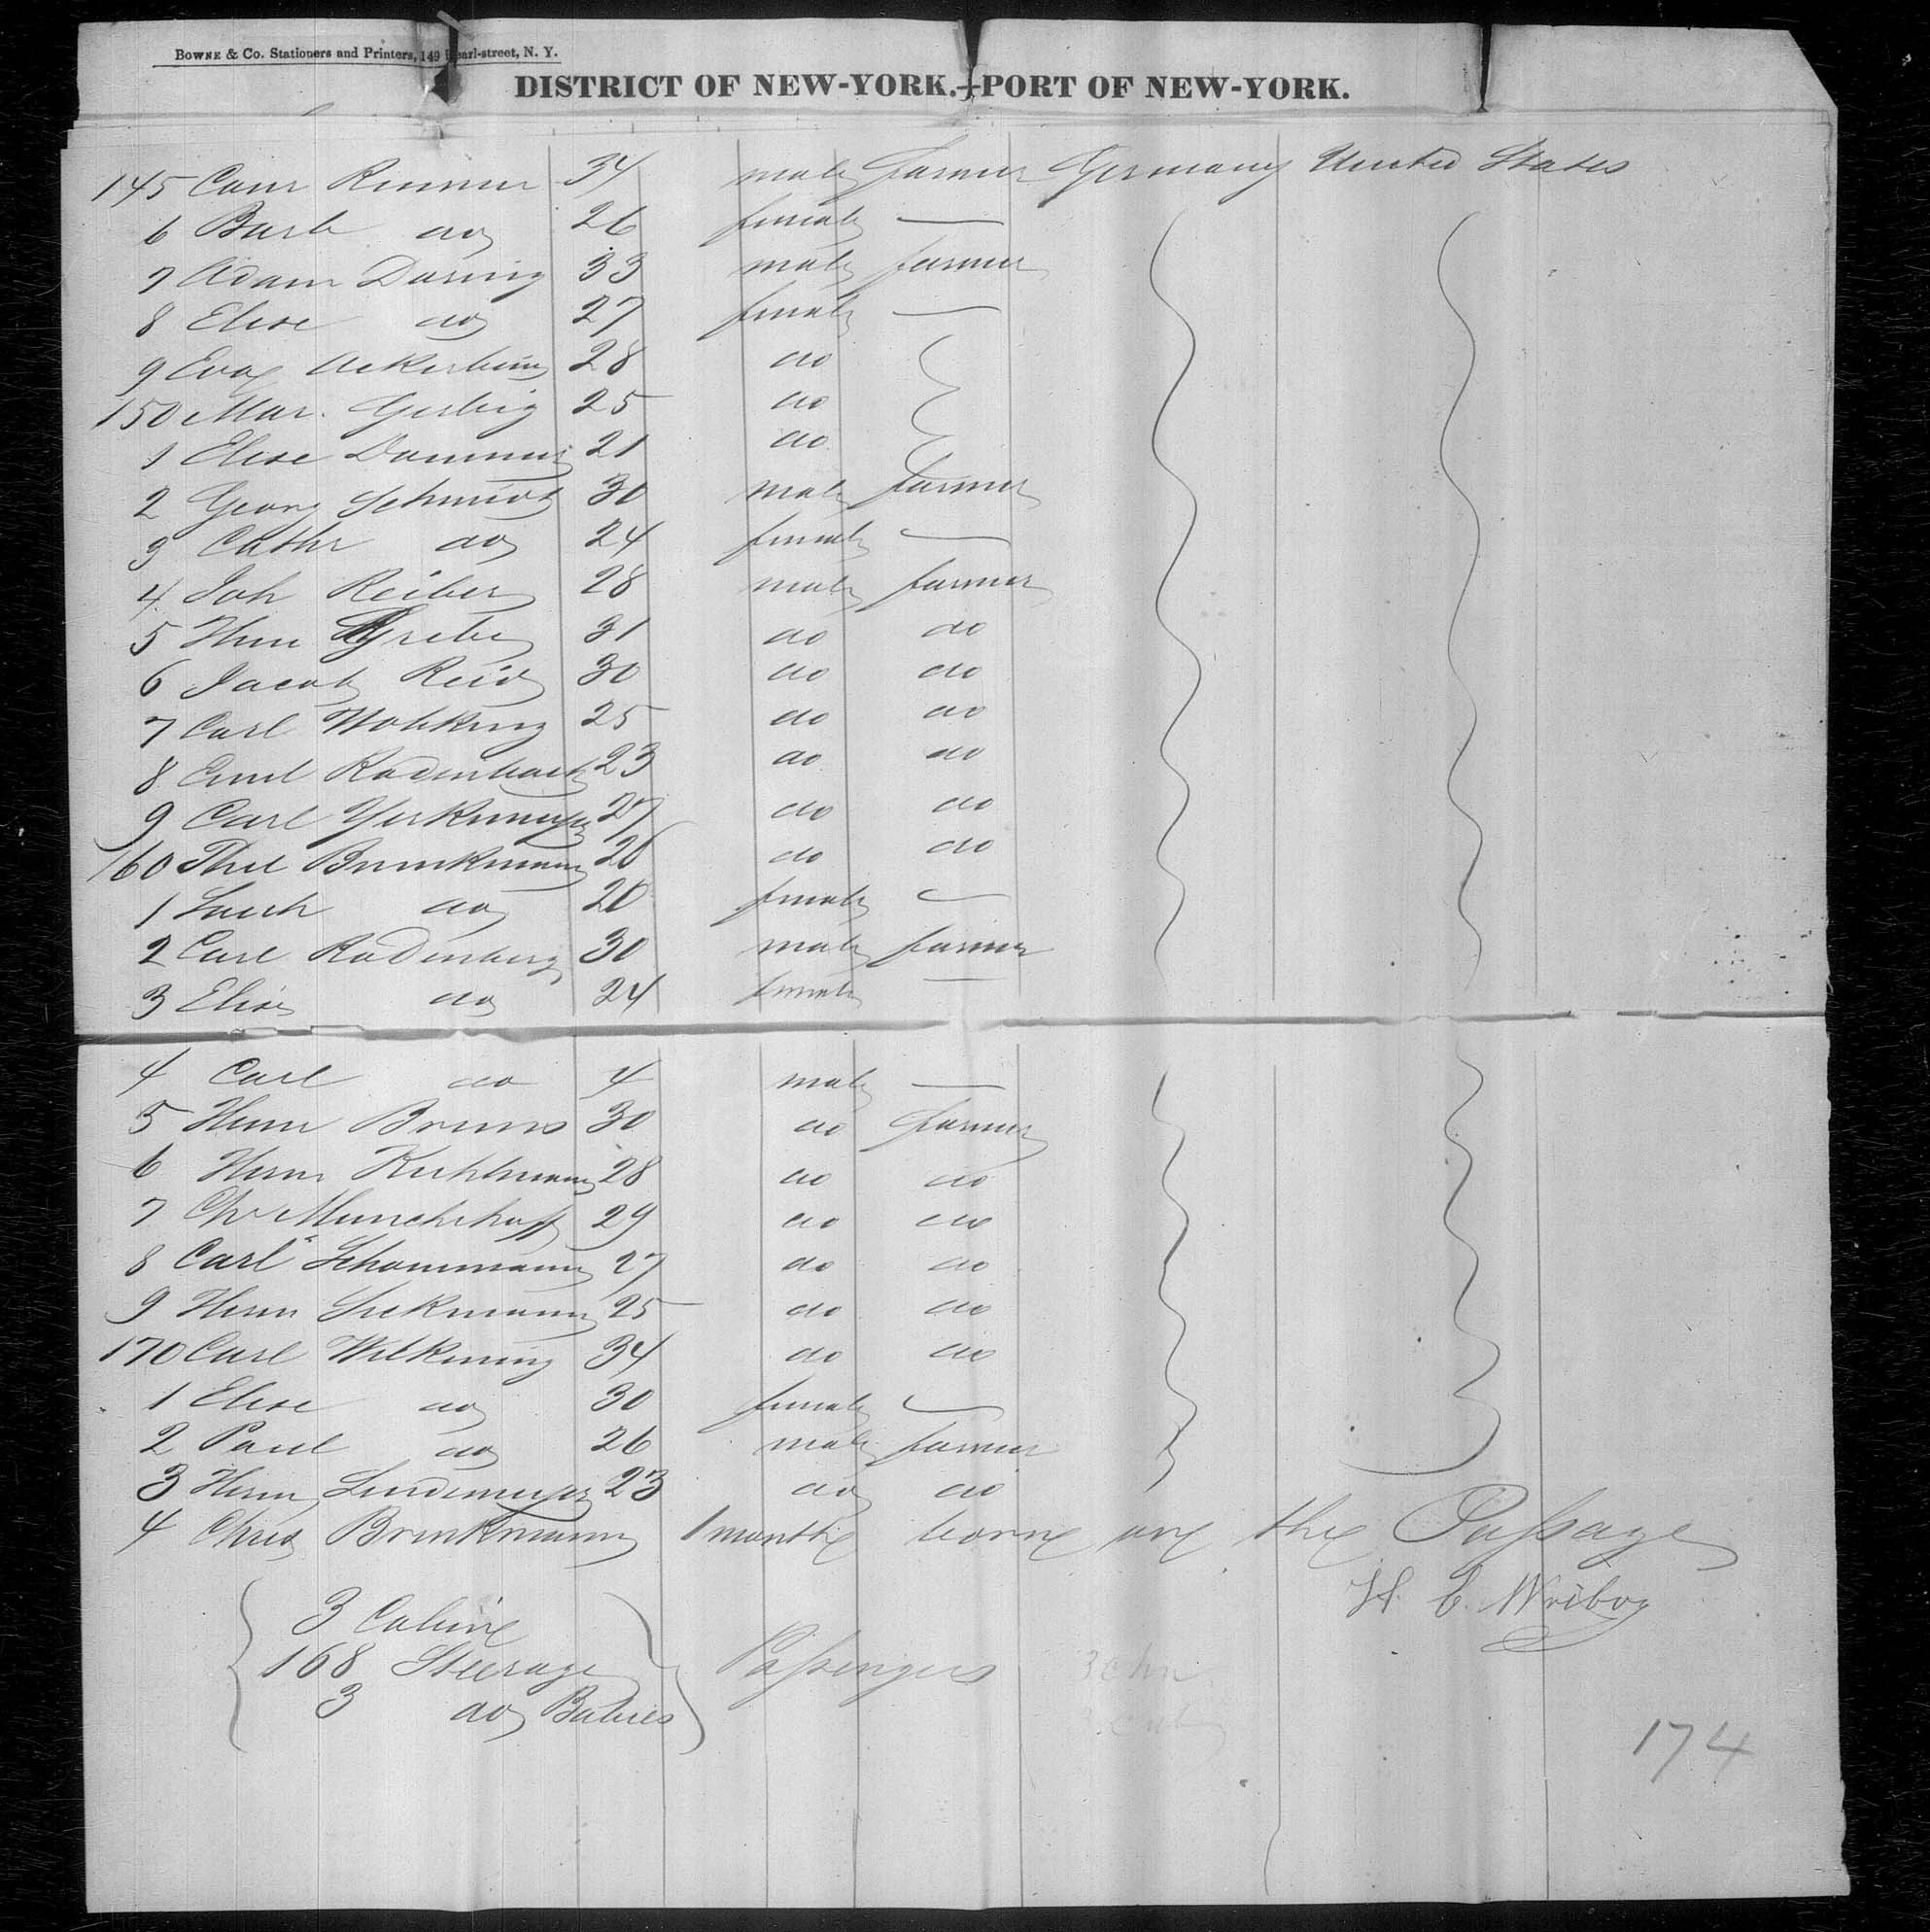 BOWNE & Co. Stationers and Printers, 149 Pearl-street, N. Y.
DISTRICT OF NEW-YORK.—PORT OF NEW-YORK.
145 34 male farmer Germany United States
6 Barb do 26 female —
7 Adam Doring 33 male farmer
8 Elise do 27 female —
9 Eva 28 do
150 Mar. Gerbig 25 do
1 Elise 21 do
2 Georg Schmidt 30 male farmer
3 Cathr do 24 female —
4 Joh Reiber 28 male farmer
5 Henr Grebe 31 do do
6 Jacob Reid 30 do do
7 Carl Wobking 25 do do
8 Emil Radenbach 23 do do
9 Carl 27 do do
160 Brinkmann 26 do do
1 do 20 female —
2 Carl Radenberg 30 male farmer
3 Elise do 24 female —
4 Carl do 4 male —
5 Henr Bruns 30 do farmer
6 Herm Kuhlmann 28 do do
7 Chr Munchhoff 29 do do
8 Carl Schonmann 27 do do
9 Herm Siekmann 25 do do
170 Carl Wilkening 34 do do
1 Elise do 30 female —
2 Paul do 26 male farmer
3 Herm Lindemeyer 23 do do
4 Chris Brinkmann 1 month born on the Passage
H. C.
3 Cabine
168 Steerage Passengers
3 do Babies
174